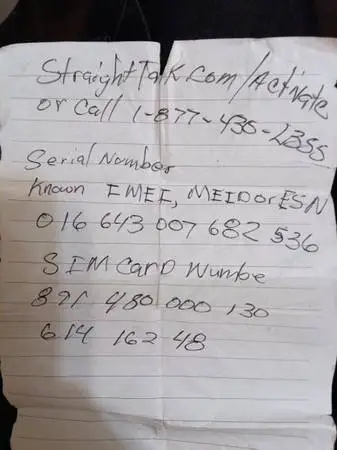 StraightTalk.com/Activate
or call 1-877-430-2355
Serial Number
Known IMEI, MEID or ESN
016 643 007 682 536
SIM Card Numbe
891 480 000 130
614 162 48